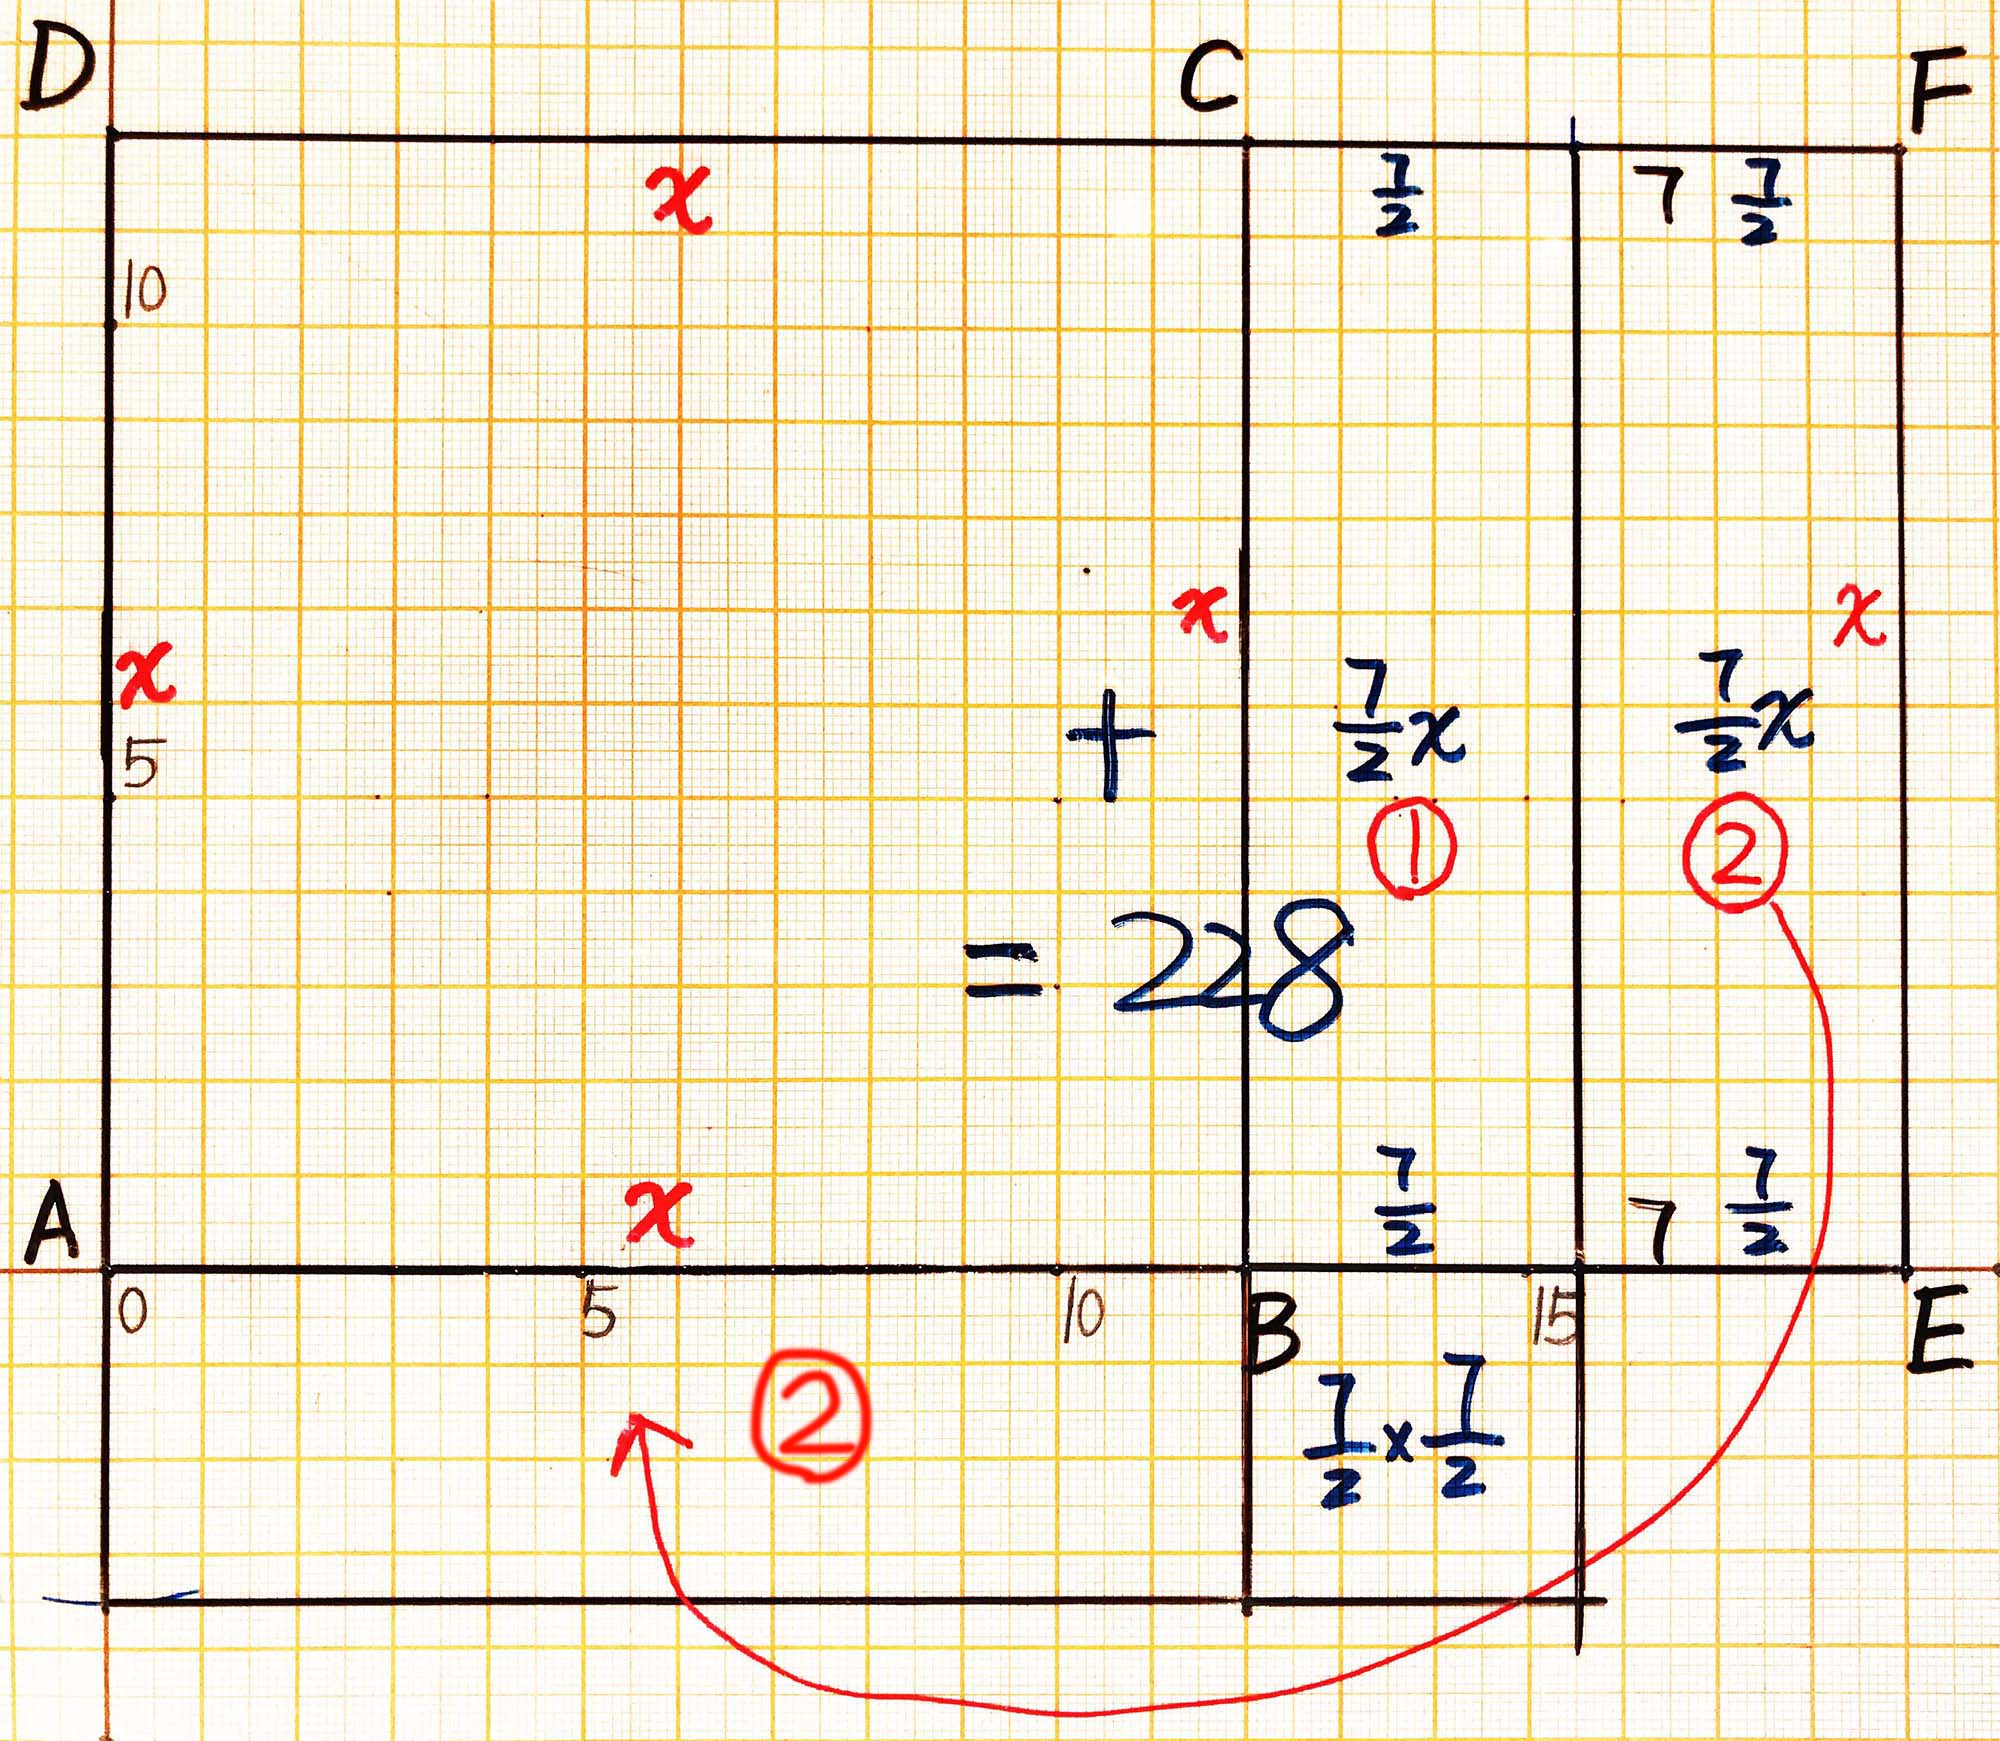 D C F
x 7/2 7 7/2
10
x x
x 7/2x 7/2x
+
5
① ②
= 228
7/2 7 7/2
A x
0 5 10 B 15 E
② 7/2×7/2